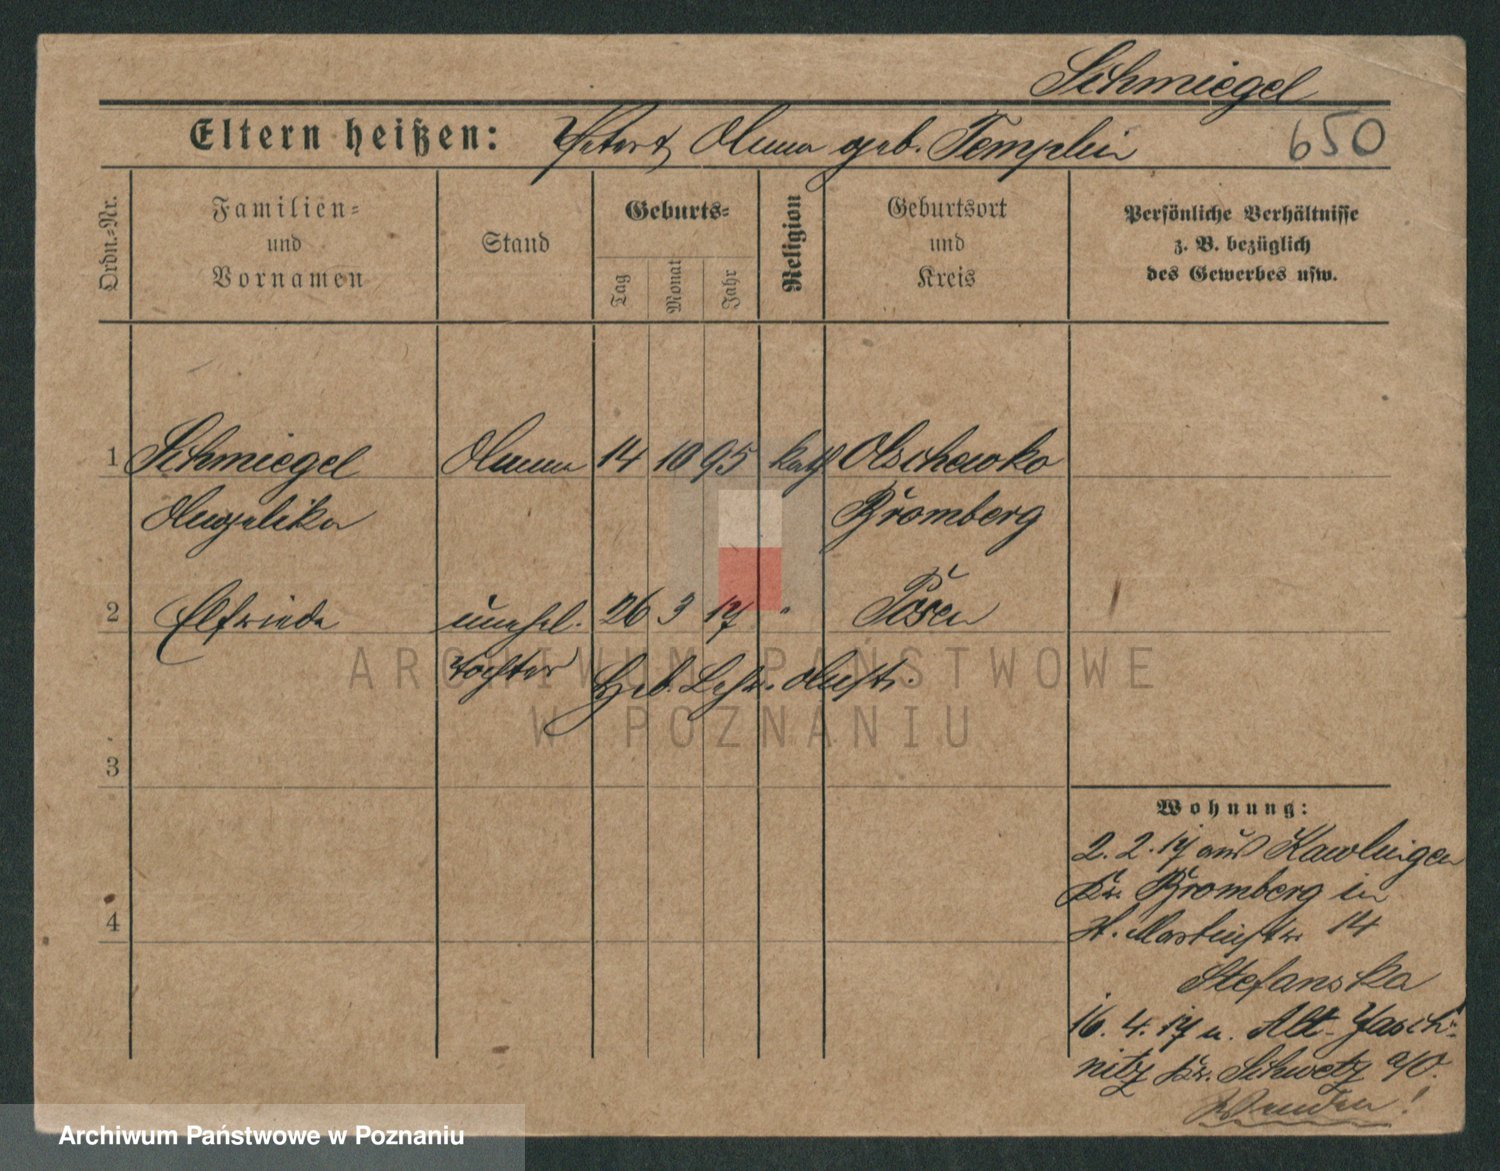 Schmiegel
Eltern heißen: Petert, Anna geb. Templin 650
Ordn.-Nr.
Familien-
und
Vornamen
Stand
Geburts-
Tag
Monat
Jahr
Religion
Geburtsort
und
Kreis
Persönliche Verhältnisse
z. B. bezüglich
des Gewerbes usw.
1 Schmiegel Amme 14 10 95 kath Olschewko
Angelika Bromberg
2 Elfriede unehel. 26 3 17 " Posen
tochter Geb. Anst.
ARCHIWUM PAŃSTWOWE
W POZNANIU
3
4
Wohnung:
2.2.17 aus
Kr. Bromberg in
St. Martinstr. 14
Stefanska
16.4.17 n. Alt-Jasch-
nitz Kr. Schwetz a/O.
Wenden!
Archiwum Państwowe w Poznaniu